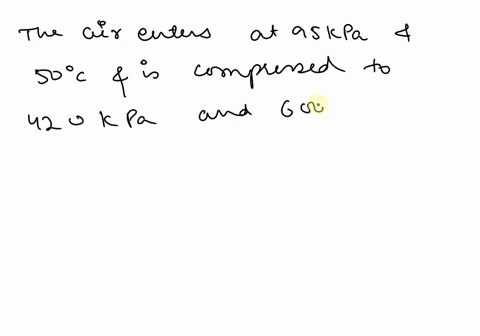 The air enters at 95 kPa &
50°c & is compressed to
420 kPa and